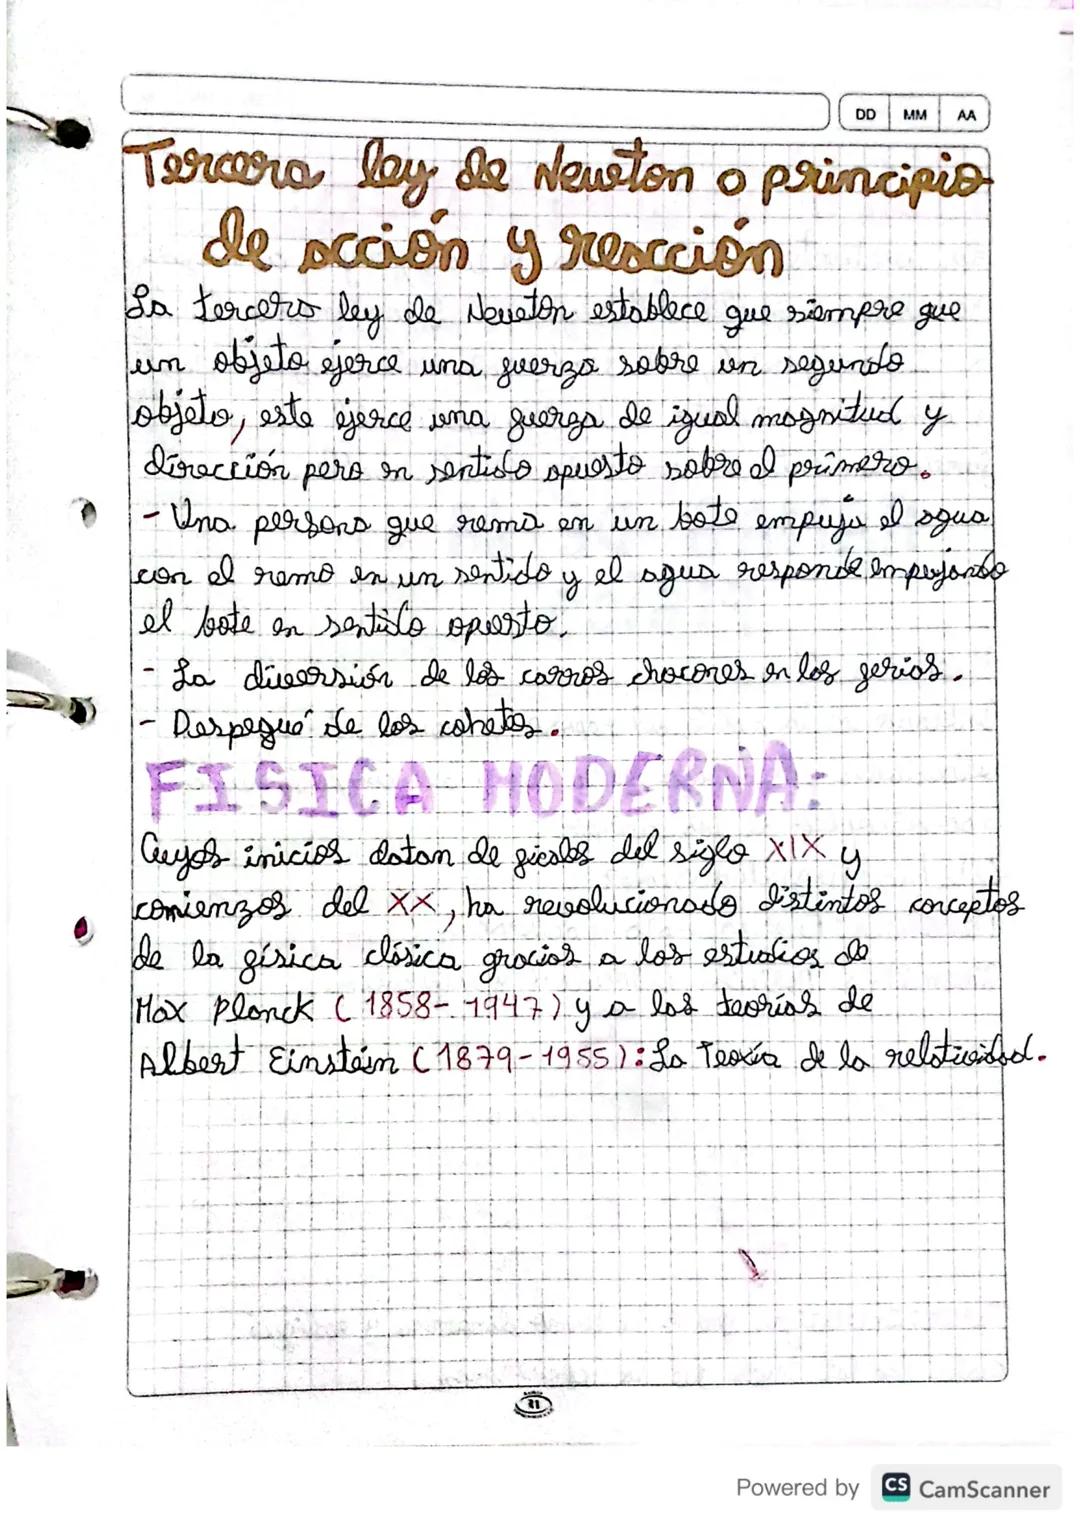 DD MM AA
Tercera ley de Newton o principio
de acción y reacción
La tercera ley de Newton establece que siempre que
un objeto ejerce una fuerza sobre un segundo
objeto, este ejerce una fuerza de igual magnitud y
dirección pero en sentido opuesto sobre el primero.
- Una persona que rema en un bote empuja el agua
con el remo en un sentido y el agua responde empujando
el bote en sentido opuesto.
- La diversión de los carros chocones en los ferias.
- Despegué de los cohetes.
FISICA MODERNA:
Cuyos inicios datan de ficales del siglo XIX y
comienzos del XX, ha revolucionado distintos conceptos
de la física clásica gracias a los estudios de
Max Planck (1858-1947) y a las teorías de
Albert Einstein (1879-1955): La Teoría de la relatividad.
Powered by CS CamScanner